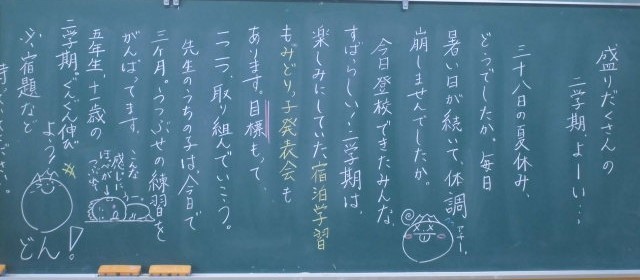 盛りだくさんの
二学期、よーい…
三十八日の夏休み、
どうでしたか。毎日
暑い日が続いて、体調
崩しませんでしたか。
今日登校できたみんな、
すばらしい！二学期は、
楽しみにしていた宿泊学習
もみどりっ子発表会も
あります。目標もって、
一つ一つ、取り組んでいこう。
先生のうちの子は、今日で
三ヶ月。うつぶせの練習を
がんばってます。
五年生、十一歳の
二学期。ぐんぐん伸び
よう！
どん！
こんな
感じに
ほっぺが
つぶれる
アチー。
※宿題など